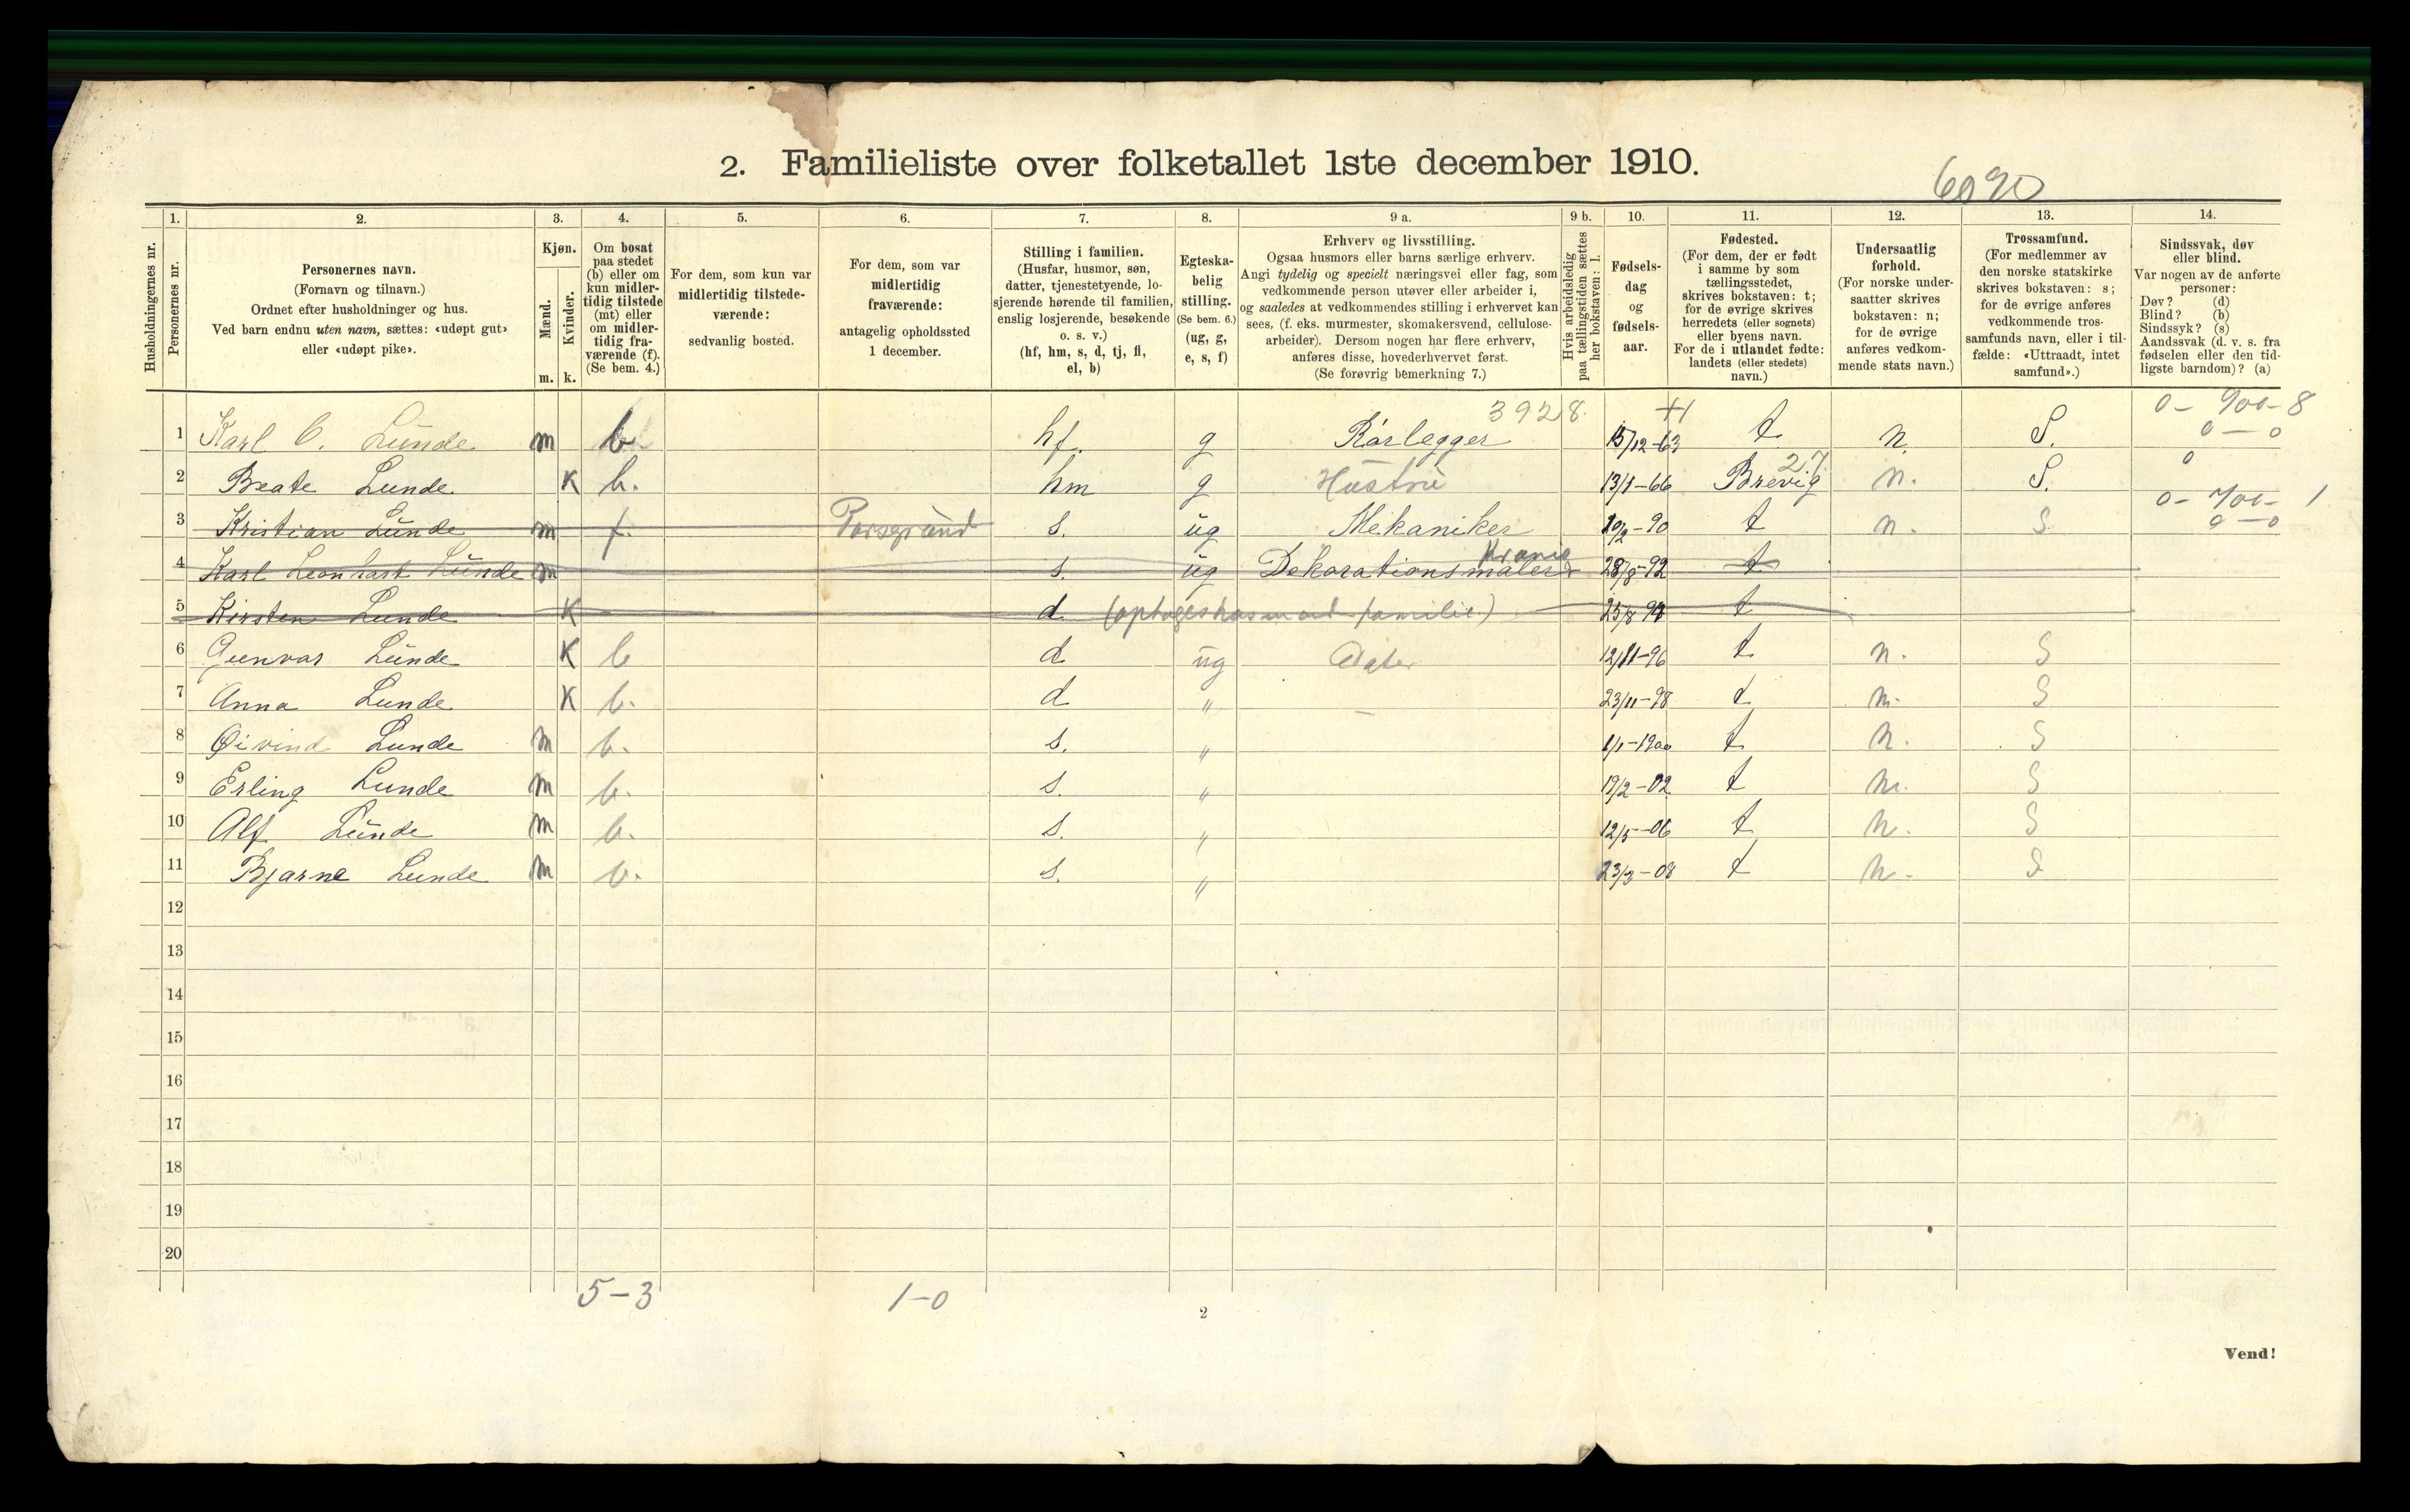 2. Familieliste over folketallet 1ste december 1910.
6090
Husholdningernes nr.
1.
Personernes nr.
2.
Personernes navn.
(Fornavn og tilnavn.)
Ordnet efter husholdninger og hus.
Ved barn endnu uten navn, sættes: «udøpt gut»
eller «udøpt pike».
3.
Kjøn.
Mænd.
Kvinder.
m. k.
4.
Om bosat
paa stedet
(b) eller om
kun midler-
tidig tilstede
(mt) eller
om midler-
tidig fra-
værende (f).
(Se bem. 4.)
5.
For dem, som kun var
midlertidig tilstede-
værende:
sedvanlig bosted.
6.
For dem, som var
midlertidig
fraværende:
antagelig opholdssted
1 december.
7.
Stilling i familien.
(Husfar, husmor, søn,
datter, tjenestetyende, lo-
sjerende hørende til familien,
enslig losjerende, besøkende
o. s. v.)
(hf, hm, s, d, tj, fl,
el, b)
8.
Egteska-
belig
stilling.
(Se bem. 6.)
(ug, g,
e, s, f)
9 a.
Erhverv og livsstilling.
Ogsaa husmors eller barns særlige erhverv.
Angi tydelig og specielt næringsvei eller fag, som
vedkommende person utøver eller arbeider i,
og saaledes at vedkommendes stilling i erhvervet kan
sees, (f. eks. murmester, skomakersvend, cellulose-
arbeider). Dersom nogen har flere erhverv,
anføres disse, hovederhvervet først.
(Se forøvrig bemerkning 7.)
9 b.
Hvis arbeidsledig
paa tællingstiden sættes
her bokstaven: l.
10.
Fødsels-
dag
og
fødsels-
aar.
11.
Fødested.
(For dem, der er født
i samme by som
tællingsstedet,
skrives bokstaven: t;
for de øvrige skrives
herredets (eller sognets)
eller byens navn.
For de i utlandet fødte:
landets (eller stedets)
navn.)
12.
Undersaatlig
forhold.
(For norske under-
saatter skrives
bokstaven: n;
for de øvrige
anføres vedkom-
mende stats navn.)
13.
Trossamfund.
(For medlemmer av
den norske statskirke
skrives bokstaven: s;
for de øvrige anføres
vedkommende tros-
samfunds navn, eller i til-
fælde: «Uttraadt, intet
samfund».)
14.
Sindssvak, døv
eller blind.
Var nogen av de anførte
personer:
Døv? (d)
Blind? (b)
Sindssyk? (s)
Aandssvak (d. v. s. fra
fødselen eller den tid-
ligste barndom)? (a)
3928. +1 0 - 900 - 8
1 Karl C. Lunde m b. hf. g Rørlegger 15/12-63 t n. S. 0 - 0
27 0
2 Beate Lunde K b. hm g Hustru 13/1-66 Brevig n. S.
0 - 700 - 1
3 Kristian Lunde m f. Porsgrund s. ug Mekaniker 20/2-90 t n. S 0 - 0
4 Karl Leonhart Lunde m s. ug Dekorationsmaler 28/8-92 t
5 Kirsten Lunde K d (optages hos en and. familie) 25/8 94 t
6 Gunvor Lunde K b d ug Dater 12/11-96 t n. S
7 Anna Lunde K b. d " — 23/11-98 t n. S
8 Øivind Lunde m b. s. " 1/1-1900 t n. S
9 Erling Lunde m b. s. " 19/2-02 t n. S
10 Alf Lunde m b. s. " 12/5-06 t n. S
11 Bjarne Lunde m b. s. " 23/3-08 t n. S
12
13
14
15
16
17
18
19
20
5-3 1-0
2
Vend!